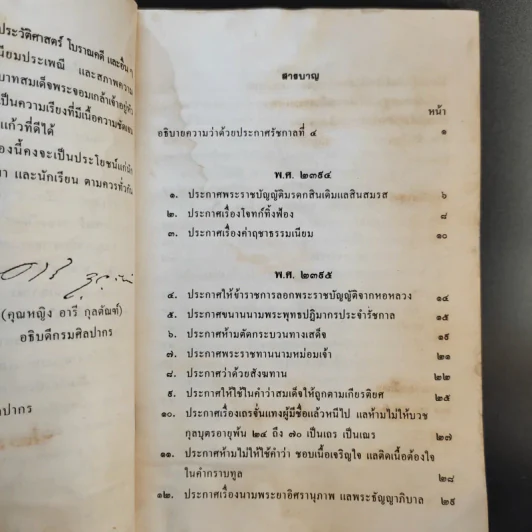 ประวัติศาสตร์ โบราณคดี และอื่น ๆ
นิยมประเพณี และสภาพความ
บาทสมเด็จพระจอมเกล้าเจ้าอยู่หัว
เป็นความเรียงที่มีเนื้อความชัดเจน
แก้วที่ดีได้
องนี้คงจะเป็นประโยชน์แก่นัก
า และนักเรียน ตามควรทั่วกัน
(คุณหญิง อารี กุลตัณฑ์)
อธิบดีกรมศิลปากร
ลปากร
สารบาญ
หน้า
อธิบายความว่าด้วยประกาศรัชกาลที่ ๔ ๑
พ.ศ. ๒๓๙๔
๑. ประกาศพระราชบัญญัติมรดกสินเดิมแลสินสมรส ๖
๒. ประกาศเรื่องโจทก์ทิ้งฟ้อง ๘
๓. ประกาศเรื่องค่าฤชาธรรมเนียม ๑๐
พ.ศ. ๒๓๙๕
๔. ประกาศให้ข้าราชการลอกพระราชบัญญัติจากหอหลวง ๑๔
๕. ประกาศขนานนามพระพุทธปฏิมากรประจำรัชกาล ๑๕
๖. ประกาศห้ามตัดกระบวนทางเสด็จ ๑๙
๗. ประกาศพระราชทานนามหม่อมเจ้า ๒๑
๘. ประกาศว่าด้วยสังฆทาน ๒๒
๙. ประกาศให้ใช้ในคำว่าสมเด็จให้ถูกตามเกียรติยศ ๒๕
๑๐. ประกาศเรื่องเถรชั้นแทงผู้มีชื่อแล้วหนีไป แลห้ามไม่ให้บวช
กุลบุตรอายุพ้น ๒๔ ถึง ๗๐ เป็นเถร เป็นเณร ๒๗
๑๑. ประกาศห้ามไม่ให้ใช้คำว่า ชอบเนื้อเจริญใจ แลติดเนื้อต้องใจ
ในคำกราบทูล ๒๘
๑๒. ประกาศเรื่องนามพระยาอิศรานุภาพ แลพระธัญญาภิบาล ๒๙